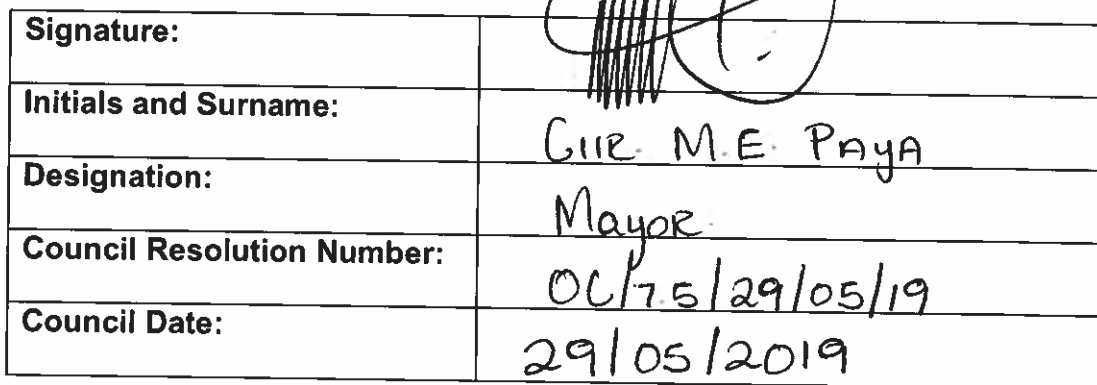 Signature:
Initials and Surname:
Cllr. M.E. PAYA
Designation:
Mayor
Council Resolution Number:
OC/7.5/29/05/19
Council Date:
29/05/2019